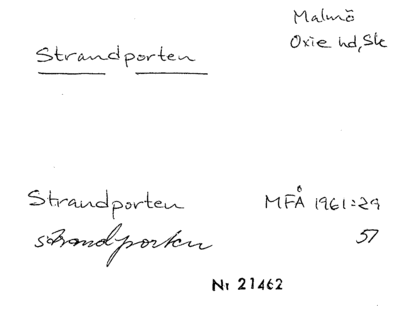 Malmö
Oxie hd, Sk
Strandporten
Strandporten MFÅ 1961:29
strandporten 57
Nr 21462